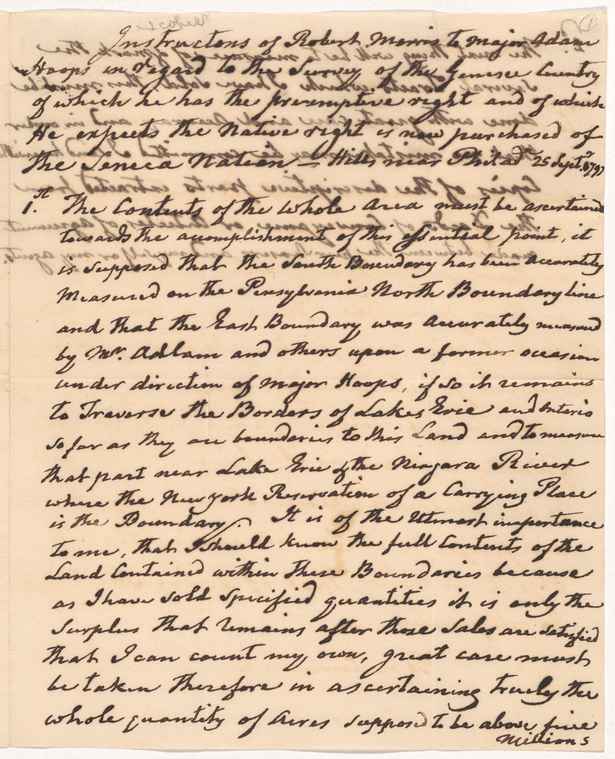 Instructons of Robert Morris to Major Adam
Hoops in regard to the Survey of the Genesee Country
of which he has the preemptive right and of which
He expects the Native right is now purchased of
the Seneca Nation — Hills near Philada 25 Septr. 1797
1.st The Contents of the whole Area must be ascertained
towards the acomplishment of this essential point, it
is supposed that the South Boundary has been accurately
Measured on the Pensylvania North Boundary line
and that the East Boundary was accurately measured
by Mr. Adlam and others upon a former occasion
under direction of Major Hoops, if so it remains
to Traverse the Borders of Lakes Erie and Ontario
so far as they are boundaries to this Land and to measure
that part near Lake Erie of the Niagara River
where the New York Reservation of a Carrying Place
is the Boundary It is of the Utmost importance
to me, that I should know the full Contents of the
Land Contained within These Boundaries because
as I have sold specified quantities it is only the
surplus that remains after those sales are satisfied
that I can count my own, great care must
be taken Therefore in ascertaining truely the
whole quantity of Acres supposed to be above five
Millions